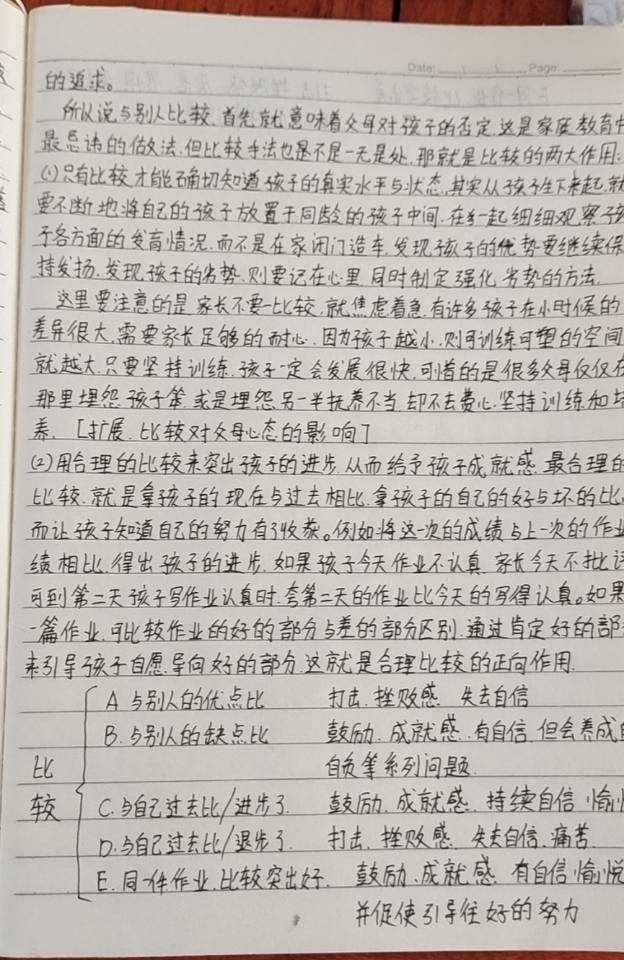 Date: Page:
的追求。
所以说与别人比较,首先就意味着父母对孩子的否定,这是家庭教育中
最忌讳的做法,但比较手法也是不是一无是处,那就是比较的两大作用:
(1)只有比较才能确切知道孩子的真实水平与状态,其实从孩子生下来起,就
要不断地将自己的孩子放置于同龄的孩子中间,在一起细细观察孩
子各方面的发育情况,而不是在家闭门造车,发现孩子的优势要继续保
持发扬,发现孩子的劣势,则要记在心里,同时制定强化劣势的方法。
这里要注意的是家长不要一比较,就焦虑着急,有许多孩子在小时候的
差异很大,需要家长足够的耐心,因为孩子越小,则可训练可塑的空间
就越大,只要坚持训练,孩子一定会发展很快,可惜的是很多父母仅仅在
那里埋怨孩子笨,或是埋怨另一半抚养不当,却不去费心,坚持训练和培
养。[扩展,比较对父母心态的影响]
(2)用合理的比较来突出孩子的进步,从而给予孩子成就感,最合理的
比较,就是拿孩子的现在与过去相比,拿孩子的自己的好与坏的比,
而让孩子知道自己的努力有了收获。例如将这一次的成绩与上一次的作业
绩相比,得出孩子的进步,如果孩子今天作业不认真,家长今天不批评
可到第二天孩子写作业认真时,夸第二天的作业比今天的写得认真。如果
一篇作业,可比较作业的好的部分与差的部分区别,通过肯定好的部
来引导孩子自愿导向好的部分,这就是合理比较的正向作用
比较
A 与别人的优点比 打击,挫败感 失去自信
B. 与别人的缺点比 鼓励,成就感,有自信,但会养成
自负等系列问题
C. 与自己过去比/进步了. 鼓励,成就感,持续自信,愉
D. 与自己过去比/退步了. 打击,挫败感 失去自信,痛苦
E. 同一件作业,比较突出好. 鼓励、成就感,有自信,愉悦
并促使引导往好的努力